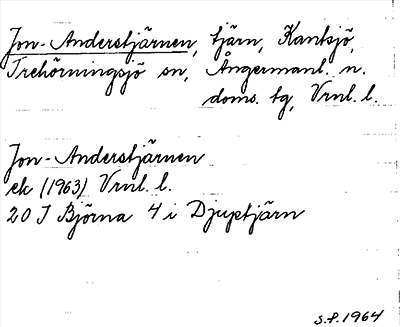 Jon-Anderstjärnen, tjärn, Kantsjö,
Trehörningsjö sn, Ångermanl. n.
doms. tg, Vrnl. l.
Jon-Anderstjärnen
ek (1963) Vrnl. l.
20 I Björna 4 i Djuptjärn
S.P. 1964